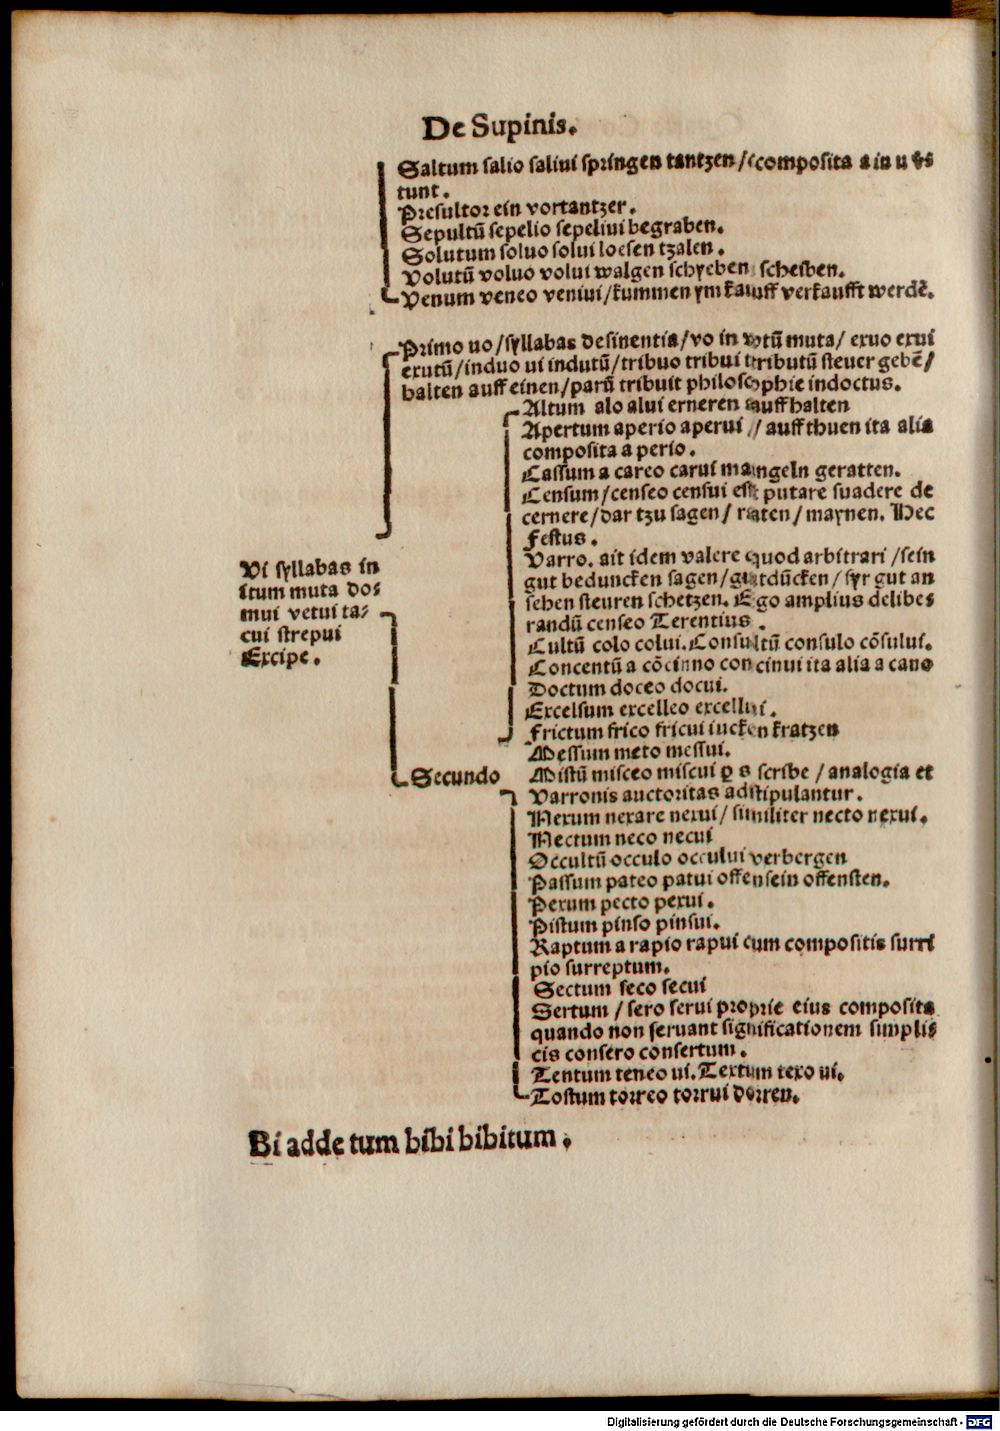 De Supinis.
Saltum salio saliui springen tantzen/composita a in u ver
tunt.
Presultor ein vortantzer.
Sepultū sepelio sepeliui begraben.
Solutum soluo solui loesen tzalen.
Volutū voluo volui walgen schyeben scheiben.
Venum veneo veniui/kummen ym kauff verkaufft werdē.
Primo uo/syllabas desinentia/vo in vtū muta/ exuo exui
exutū/induo ui indutū/tribuo tribui tributū steuer gebē/
halten auff einen/parū tribuit philosophie indoctus.
Vi syllabas in
itum muta do⸗
mui vetui ta⸗
cui strepui
Excipe.
Secundo
Altum alo alui erneren auffhalten
Apertum aperio aperui / auffthuen ita alia
composita a perio.
Cassum a careo carui mangeln geratten.
Censum/censeo censui est putare suadere de
cernere/dar tzu sagen/ raten/ maynen. Hec
Festus.
Varro. ait idem valere quod arbitrari /sein
gut beduncken sagen/gutdūcken/ syr gut an
sehen steuren schetzen. Ego amplius delibe⸗
randū censeo Terentius.
Cultū colo colui. Consultū consulo cōsului.
Concentū a cōcinno concinui ita alia a cano
Doctum doceo docui.
Excelsum excelleo excellui.
Frictum frico fricui iucken kratzen
Messum meto messui.
Mistū misceo miscui ꝑ s scribe / analogia et
Varronis auctoritas adstipulantur.
Nexum nexare nexui/ similiter necto nexui.
Nectum neco necui
Occultū occulo occului verbergen
Passum pateo patui offen sein offensten.
Pexum pecto pexui.
Pistum pinso pinsui.
Raptum a rapio rapui cum compositis surri
pio surreptum.
Sectum seco secui
Sertum / sero serui proprie eius composita
quando non seruant significationem simpli⸗
cis consero consertum.
Tentum teneo ui. Textum texo ui.
Tostum torreo torrui dorren.
Bi adde tum bibi bibitum.
Digitalisierung gefördert durch die Deutsche Forschungsgemeinschaft - DFG